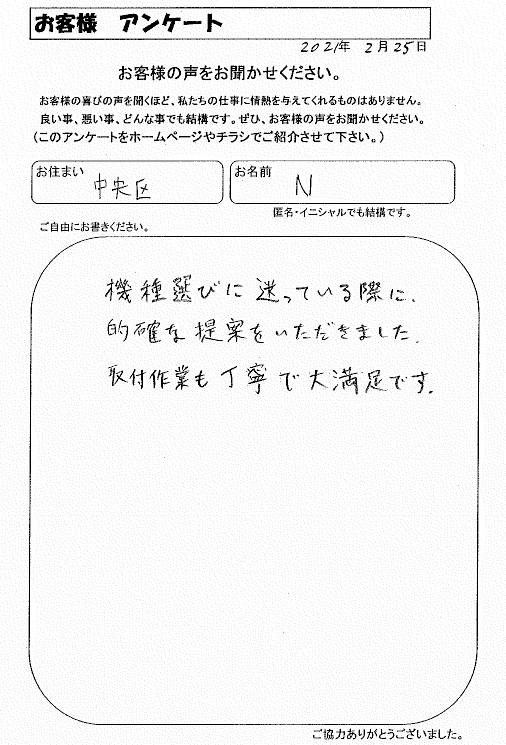 お客様 アンケート
2021年 2月25日
お客様の声をお聞かせください。
お客様の喜びの声を聞くほど、私たちの仕事に情熱を与えてくれるものはありません。
良い事、悪い事、どんな事でも結構です。ぜひ、お客様の声をお聞かせください。
(このアンケートをホームページやチラシでご紹介させて下さい。)
お住まい 中央区
お名前 N
匿名・イニシャルでも結構です。
ご自由にお書きください。
機種選びに迷っている際に、
的確な提案をいただきました。
取付作業も丁寧で大満足です。
ご協力ありがとうございました。